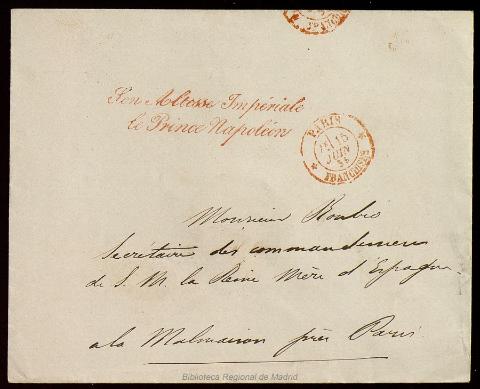 Son Altesse Impériale
le Prince Napoléon
PARIS
15
JUIN
FRANCHISES
Monsieur Roubio
Secrétaire des commandements
de S. M. la Reine Mère d'Espagne
a la Malmaison près Paris
Biblioteca Regional de Madrid